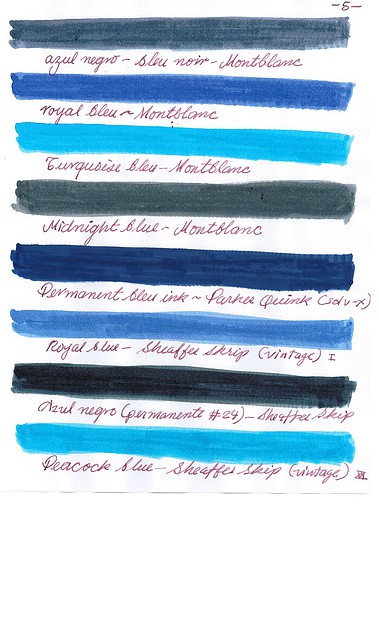 -5-
azul negro - bleu noir - Montblanc
royal bleu ~ Montblanc
Turquoise bleu - Montblanc
Midnight blue - Montblanc
Permanent bleu ink ~ Parker Quink (solv-x)
Royal blue - Sheaffer Skrip (vintage) I
Azul negro (permanente #24) - Sheaffer Skip
Peacock blue - Sheaffer Skip (vintage) VI